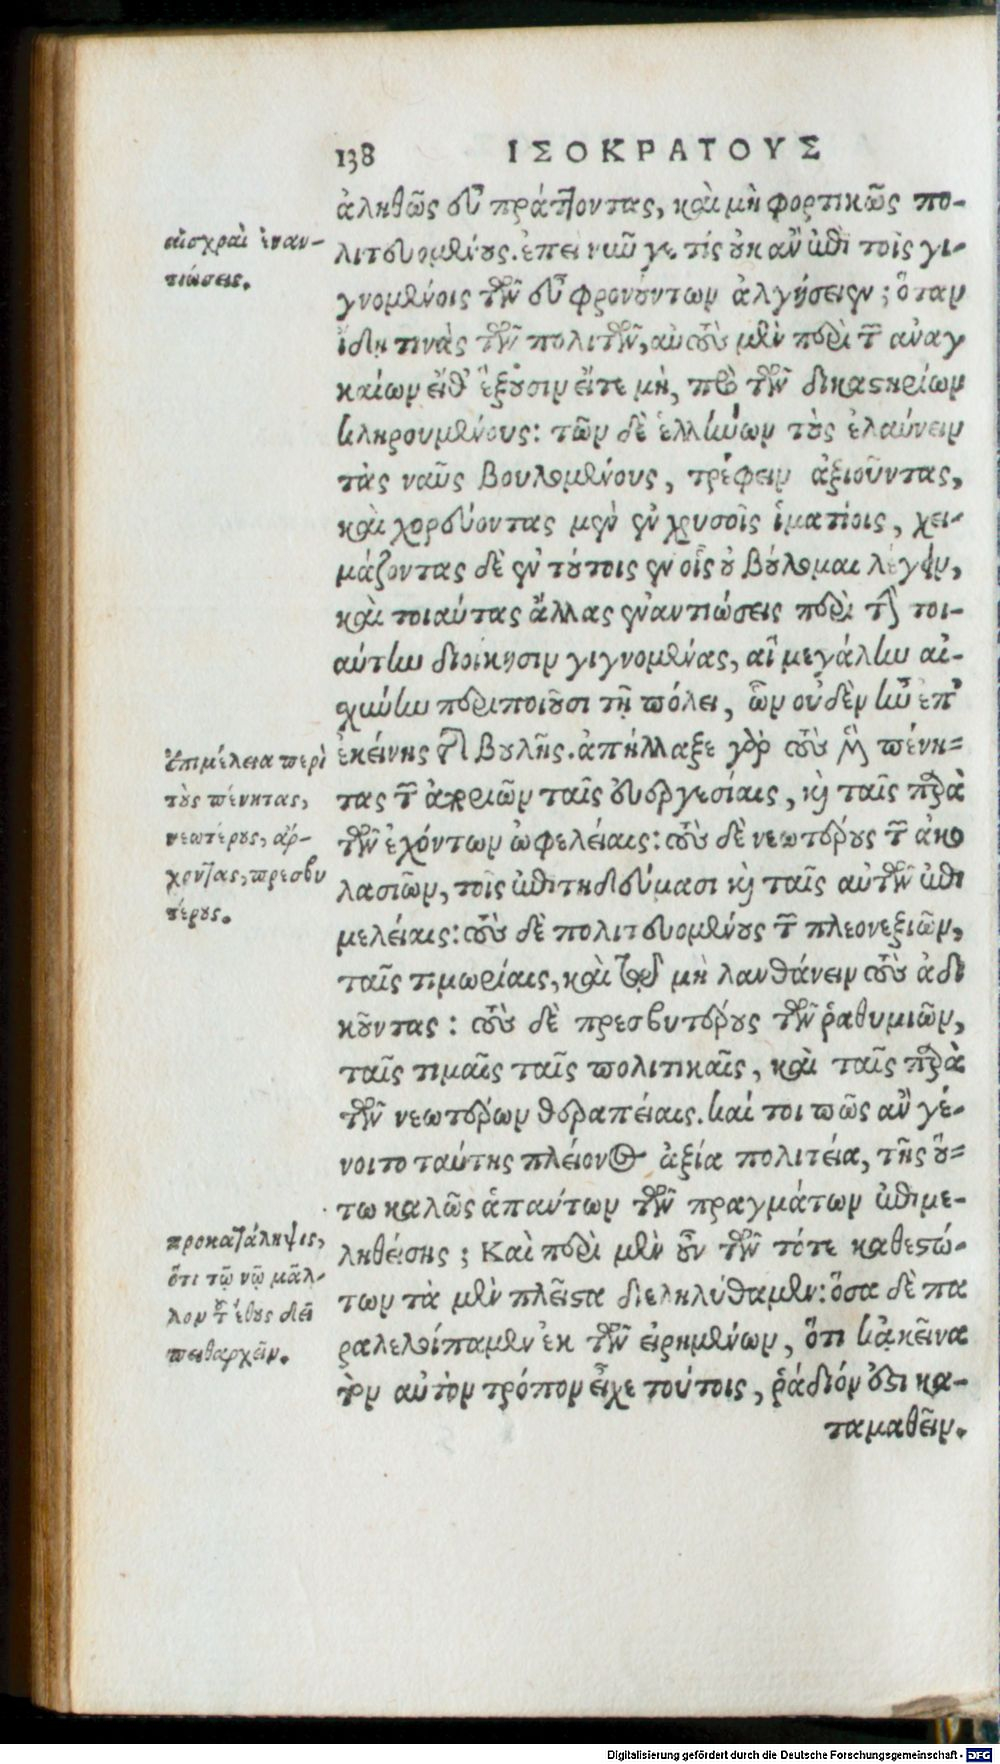 138 ΙΣΟΚΡΑΤΟΥΣ
ἀληθῶς εὖ πράττοντας, καὶ μὴ φορτικῶς πο-
λιτευομένους. ἐπεὶ νῦν γε τίς οὐκ ἂν ἐπὶ τοῖς γι-
γνομένοις τῶν εὖ φρονούντων ἀλγήσειεν; ὅταν
ἴδῃ τινὰς τῶν πολιτῶν, αὐτοὺς μὲν περὶ τῶν ἀναγ
καίων εἴθ' ἕξουσιν εἴτε μὴ, πρὸ τῶν δικαστηρίων
κληρουμένους: τῶν δὲ ἑλλήνων τοὺς ἐλαύνειν
τὰς ναῦς βουλομένους, τρέφειν ἀξιοῦντας,
καὶ χορεύοντας μὲν ἐν χρυσοῖς ἱματίοις, χει-
μάζοντας δὲ ἐν τούτοις ἐν οἷς οὐ βούλομαι λέγειν,
καὶ τοιαύτας ἄλλας ἐναντιώσεις περὶ τὴν τοι-
αύτην διοίκησιν γιγνομένας, αἳ μεγάλην αἰ-
σχύνην περιποιοῦσι τῇ πόλει, ὧν οὐδὲν ἦν ἐπ'
ἐκείνης τῆς βουλῆς. ἀπήλλαξε γὰρ τοὺς μὲν πένη-
τας τῶν ἀποριῶν ταῖς εὐεργεσίαις, καὶ ταῖς παρὰ
τῶν ἐχόντων ὠφελείαις: τοὺς δὲ νεωτέρους τῶν ἀκο
λασιῶν, τοῖς ἐπιτηδεύμασι καὶ ταῖς αὐτῶν ἐπι
μελείαις: τοὺς δὲ πολιτευομένους τῶν πλεονεξιῶν,
ταῖς τιμωρίαις, καὶ τῷ μὴ λανθάνειν τοὺς ἀδι
κοῦντας: τοὺς δὲ πρεσβυτέρους τῶν ῥαθυμιῶν,
ταῖς τιμαῖς ταῖς πολιτικαῖς, καὶ ταῖς παρὰ
τῶν νεωτέρων θεραπείαις. καί τοι πῶς ἂν γέ-
νοιτο ταύτης πλείονος ἀξία πολιτεία, τῆς οὕ-
τω καλῶς ἁπάντων τῶν πραγμάτων ἐπιμε-
ληθείσης; Καὶ περὶ μὲν οὖν τῶν τότε καθεστώ-
των τὰ μὲν πλεῖστα διεληλύθαμεν: ὅσα δὲ πα
ραλελοίπαμεν ἐκ τῶν εἰρημένων, ὅτι κἀκεῖνα
τὸν αὐτὸν τρόπον εἶχε τούτοις, ῥᾴδιόν ἐστι κα-
ταμαθεῖν.
αἰσχραὶ ἐναν-
τιώσεις.
Ἐπιμέλεια περὶ
τοὺς πένητας,
νεωτέρους, ἄρ-
χοντας, πρεσβυ
τέρους.
προκατάληψις,
ὅτι τῷ νῷ μᾶλ-
λον ἢ ἔθους δεῖ
πειθαρχεῖν.
Digitalisierung gefördert durch die Deutsche Forschungsgemeinschaft - DFG